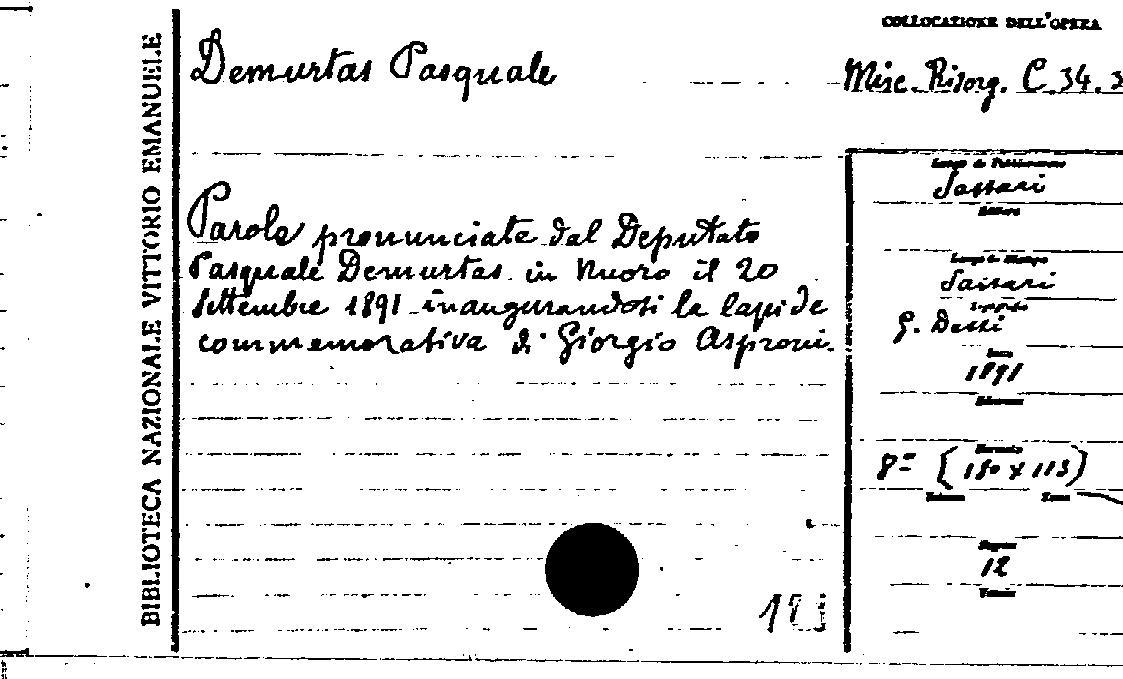 COLLOCAZIONE DELL'OPERA
BIBLIOTECA NAZIONALE VITTORIO EMANUELE
Demurtas Pasquale
Misc. Risorg. C. 34. 3
Parole pronunciate dal Deputato
Pasquale Demurtas in Nuoro il 20
Settembre 1891 inaugurandosi la lapide
commemorativa di Giorgio Asproni.
Luogo di Pubblicazione
Sassari
Editore
Luogo di Stampa
Sassari
Tipografia
G. Dessì
Data
1891
Edizione
Formato
8º (180 x 113)
Volumi
Tomi
Pagine
12
Tavole